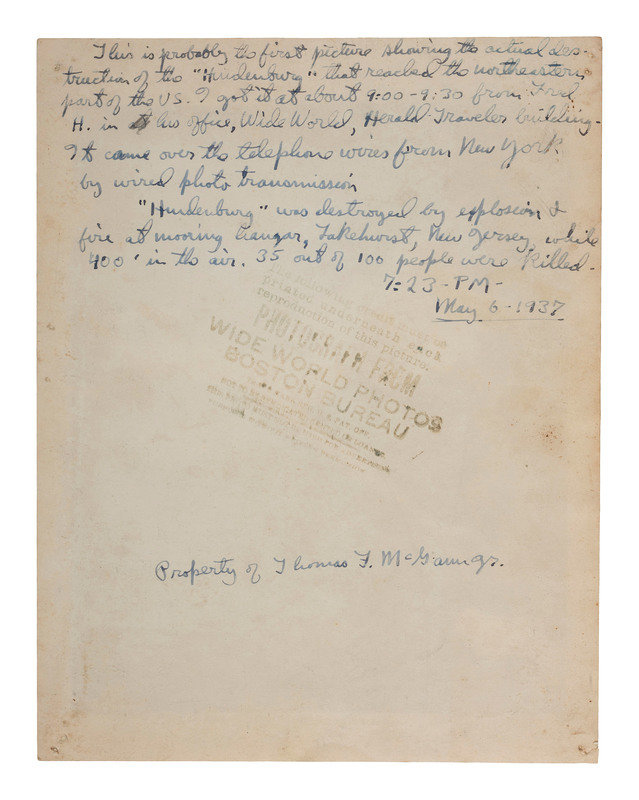 This is probably the first picture showing the actual des-
truction of the "Hindenburg" that reached the northeastern
part of the U.S. I got it at about 9:00-9:30 from Fred
H. in his office, Wide World, Herald-Traveler building.
It came over the telephone wires from New York
by wired photo transmission
"Hindenburg" was destroyed by explosion &
fire at mooring hangar, Lakehurst, New Jersey, while
400' in the air. 35 out of 100 people were killed.
7:23 - PM -
May 6 - 1937
printed underneath each
reproduction of this picture.
PHOTOGRAPH FROM
WIDE WORLD PHOTOS
BOSTON BUREAU
Property of Thomas F. McGann Jr.